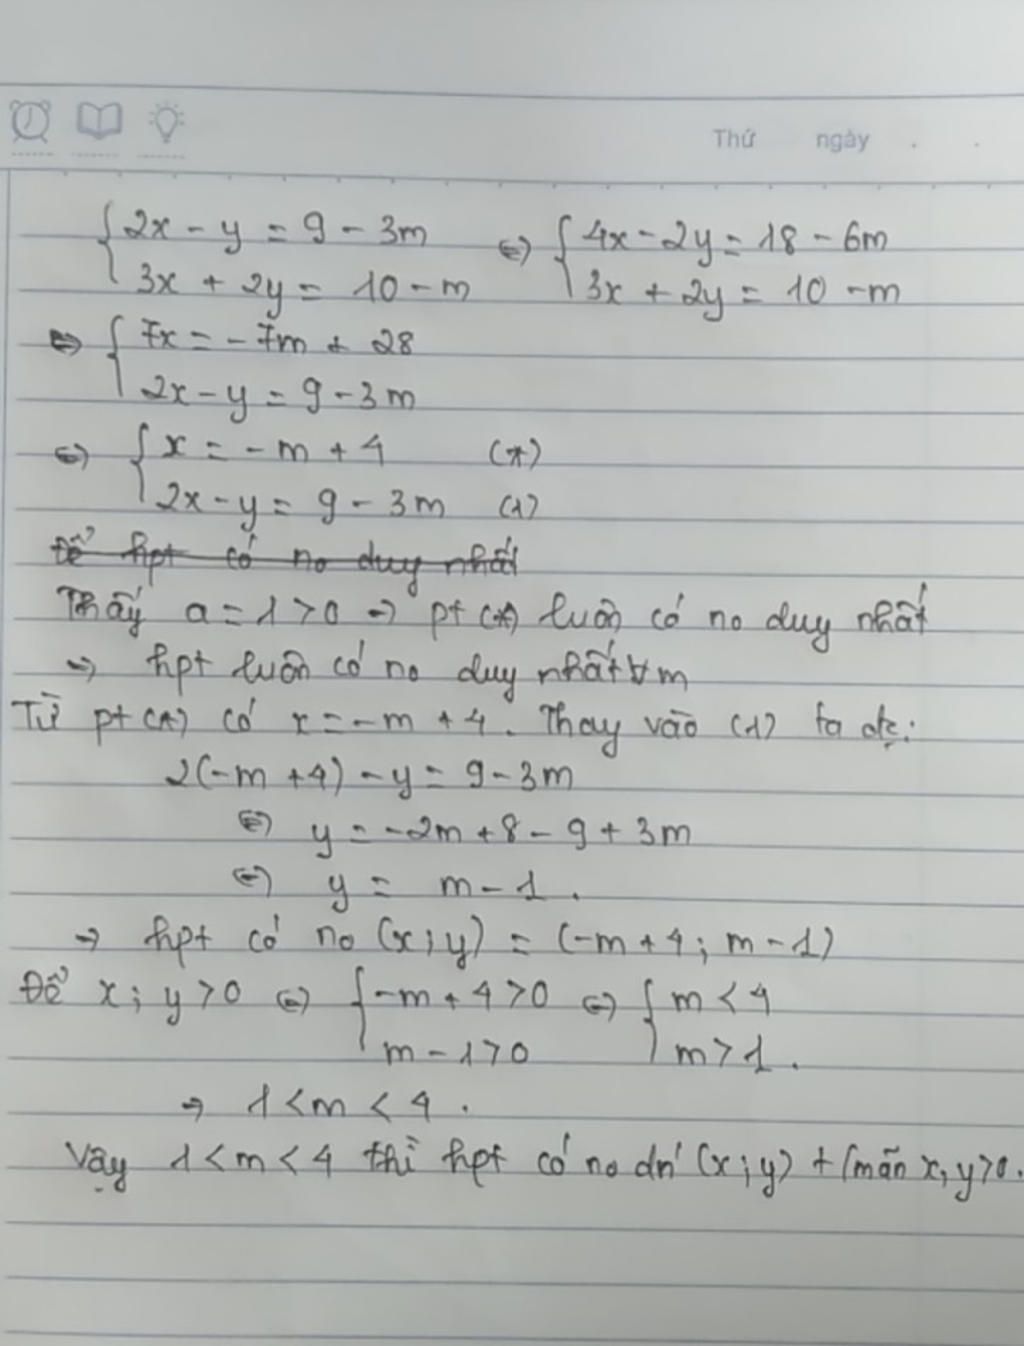 Thứ ngày . .
{ 2x - y = 9 - 3m <=> { 4x - 2y = 18 - 6m
3x + 2y = 10 - m 3x + 2y = 10 - m
<=> { 7x = - 7m + 28
2x - y = 9 - 3m
<=> { x = - m + 4 (*)
2x - y = 9 - 3m (1)
Để hpt có no duy nhất
Thấy a = 1 > 0 → pt (*) luôn có no duy nhất
→ hpt luôn có no duy nhất ∀m
Từ pt (*) có x = - m + 4. Thay vào (1) ta đc:
2(-m + 4) - y = 9 - 3m
<=> y = -2m + 8 - 9 + 3m
<=> y = m - 1.
→ hpt có no (x; y) = (-m + 4; m - 1)
Để x; y > 0 <=> { -m + 4 > 0 <=> { m < 4
m - 1 > 0 m > 1.
→ 1 < m < 4.
Vậy 1 < m < 4 thì hpt có no dn' (x; y) t/mãn x, y > 0.